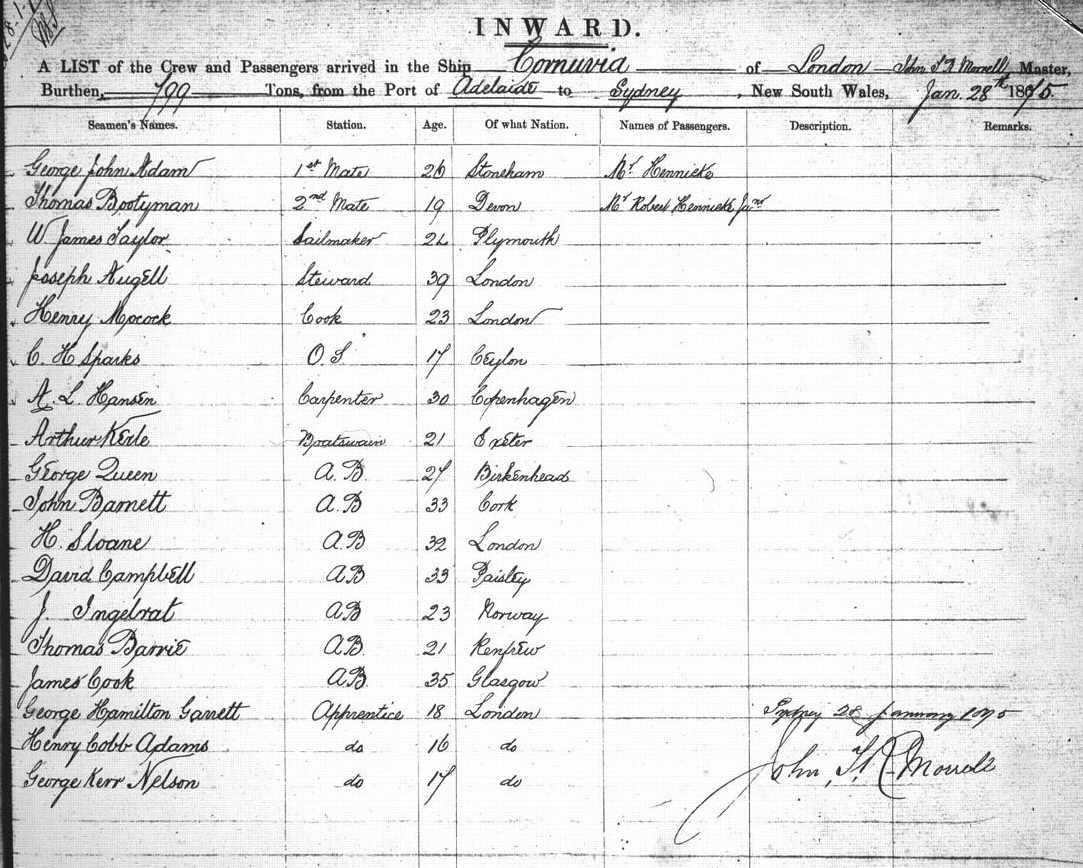 INWARD.
A LIST of the Crew and Passengers arrived in the Ship Cornuvia of London John T. R. Morrell, Master,
Burthen, 799 Tons, from the Port of Adelaide to Sydney, New South Wales, Jan. 28th 1875.
Seamen's Names. Station. Age. Of what Nation. Names of Passengers. Description. Remarks.
George John Adam 1st Mate 26 Stoneham Mr. Hennicke
Thomas Bootyman 2nd Mate 19 Devon Mr Robert Hennicke Junr
W. James Taylor Sailmaker Plymouth
Joseph Augell Steward 39 London
Henry Mocock Cook 23 London
C. H Sparks O. S 17 Ceylon
A. L. Hansen Carpenter 30 Copenhagen
Arthur Kerle Boatswain 21 Exeter
George Queen A. B. 27 Birkenhead
John Barnett A. B 33 Cork
H. Sloane A. B 32 London
David Campbell AB 33 Paisley
J. Ingelrat AB 23 Norway
Thomas Barrie AB. 21 Renfrew
James Cook AB. 35 Glasgow
George Hamilton Garrett Apprentice 18 London Sydney 28 January 1875
Henry Cobb Adams do 16 do
George Kerr Nelson do 17 do John T. R. Morrell